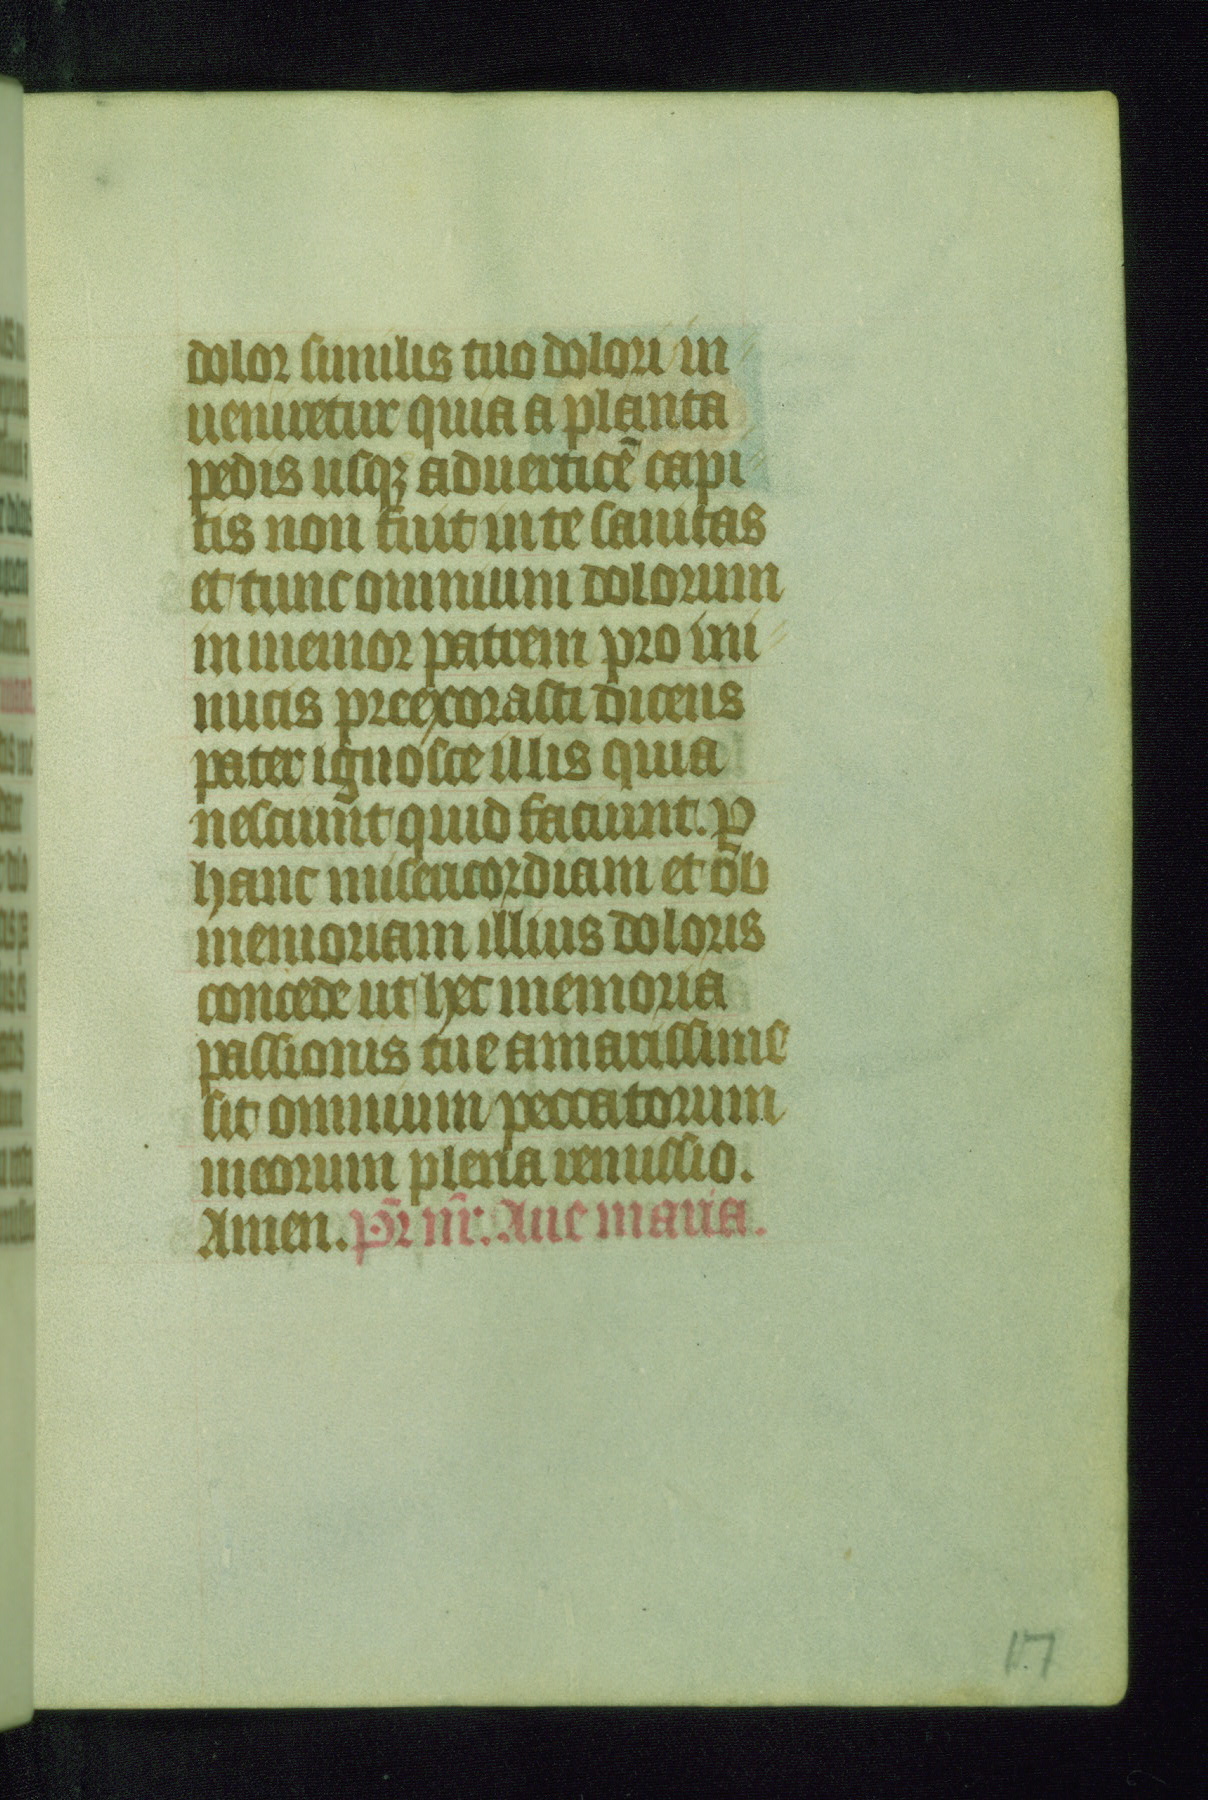 dolor similis tuo dolori in
ueniretur quia a planta
pedis usqꝫ aduerticē capi
tis non fuit in te sanitas
et tunc omnium dolorum
in memor patrem pro ini
micis preexorasti dicens
pater ignosce illis quia
nesciunt quid faciunt. ꝑ
hanc misericordiam et ob
memoriam illius doloris
concede ut hec memoria
passionis tue amarissime
sit omnium peccatorum
meorum plena remissio.
Amen. Pr̄ nr̄. Aue maria.
17